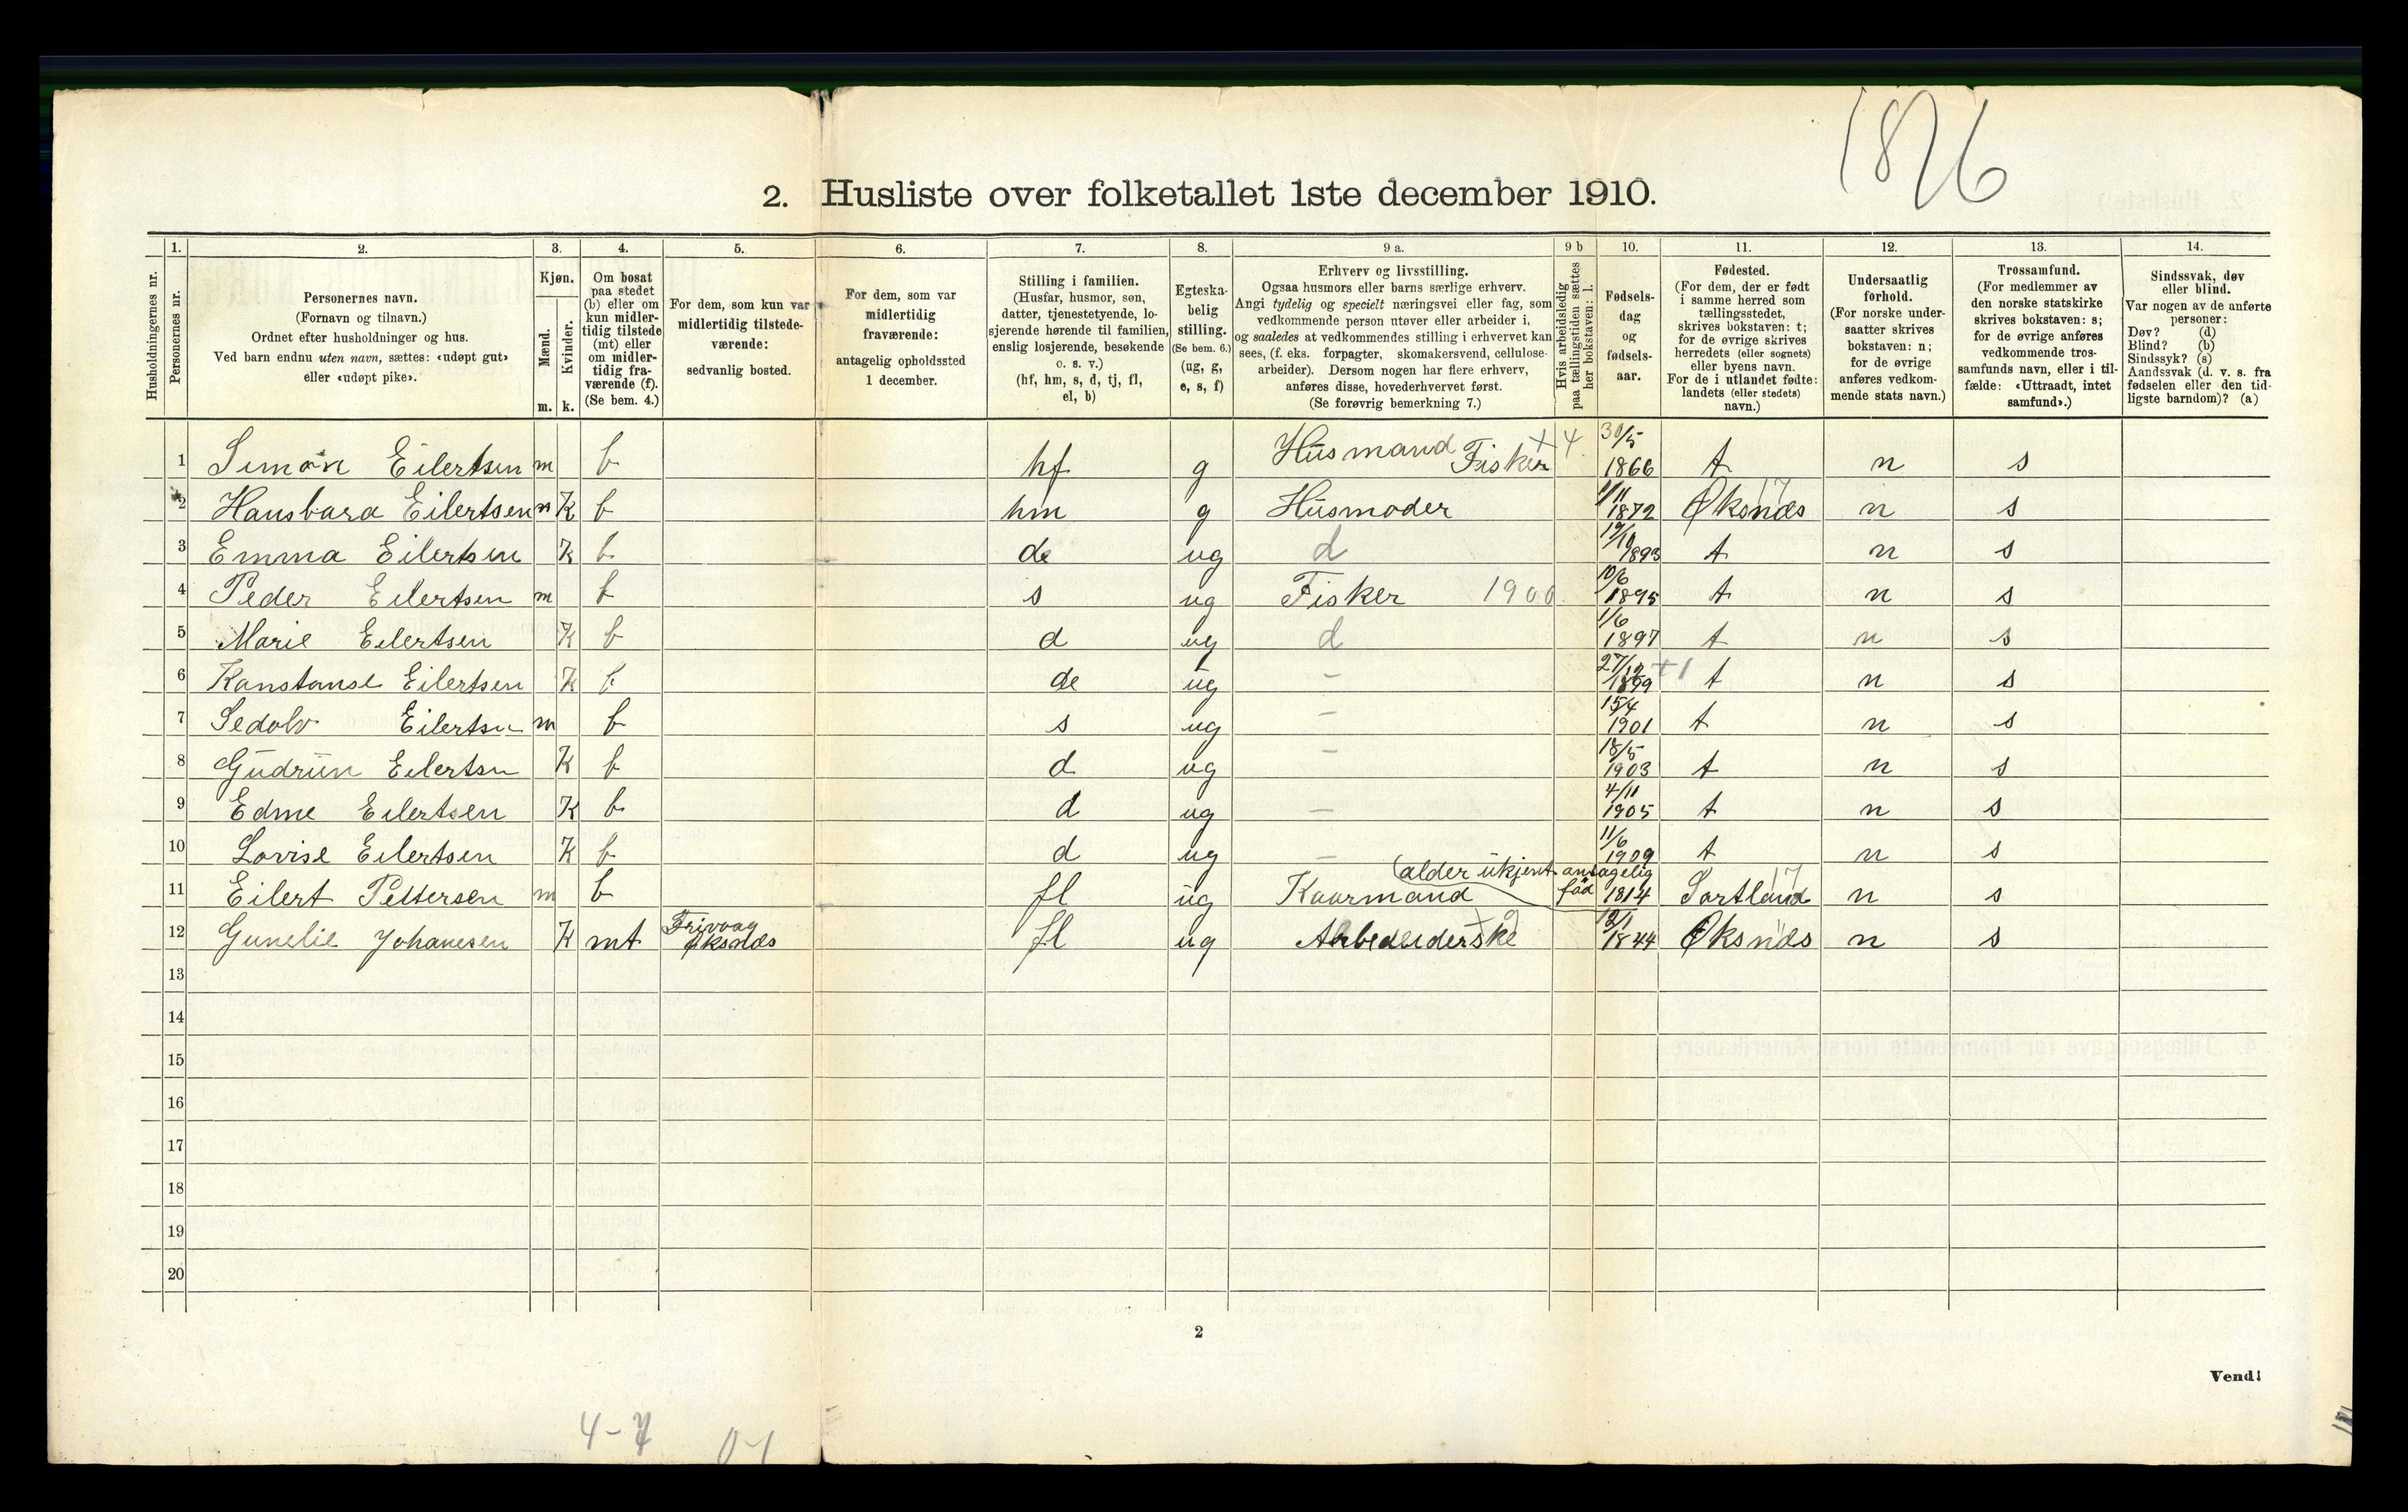 1876
2. Husliste over folketallet 1ste december 1910.
Husholdningernes nr.
1. Personernes nr.
2. Personernes navn. (Fornavn og tilnavn.) Ordnet efter husholdninger og hus. Ved barn endnu uten navn, sættes: «udøpt gut» eller «udøpt pike».
3. Kjøn. Mænd. m. Kvinder. k.
4. Om bosat paa stedet (b) eller om kun midlertidig tilstede (mt) eller om midlertidig fraværende (f). (Se bem. 4.)
5. For dem, som kun var midlertidig tilstedeværende: sedvanlig bosted.
6. For dem, som var midlertidig fraværende: antagelig opholdssted 1 december.
7. Stilling i familien. (Husfar, husmor, søn, datter, tjenestetyende, losjerende hørende til familien, enslig losjerende, besøkende o. s. v.) (hf, hm, s, d, tj, fl, el, b)
8. Egteskabelig stilling. (Se bem. 6.) (ug, g, e, s, f)
9 a. Erhverv og livsstilling. Ogsaa husmors eller barns særlige erhverv. Angi tydelig og specielt næringsvei eller fag, som vedkommende person utøver eller arbeider i, og saaledes at vedkommendes stilling i erhvervet kan sees, (f. eks. forpagter, skomakersvend, cellulosearbeider). Dersom nogen har flere erhverv, anføres disse, hovederhvervet først. (Se forøvrig bemerkning 7.)
9 b Hvis arbeidsledig paa tællingstiden sættes her bokstaven: l.
10. Fødselsdag og fødselsaar.
11. Fødested. (For dem, der er født i samme herred som tællingsstedet, skrives bokstaven: t; for de øvrige skrives herredets (eller sognets) eller byens navn. For de i utlandet fødte: landets (eller stedets) navn.)
12. Undersaatlig forhold. (For norske undersaatter skrives bokstaven: n; for de øvrige anføres vedkommende stats navn.)
13. Trossamfund. (For medlemmer av den norske statskirke skrives bokstaven: s; for de øvrige anføres vedkommende trossamfunds navn, eller i tilfælde: «Uttraadt, intet samfund».)
14. Sindssvak, døv eller blind. Var nogen av de anførte personer: Døv? (d) Blind? (b) Sindssyk? (s) Aandssvak (d. v. s. fra fødselen eller den tidligste barndom)? (a)
1 Simon Eilertsen m b hf g Husmand Fisker + 4. 30/5 1866 t n s
2 Hansbara Eilertsen m K b hm g Husmoder 1/11 1872 Øksnæs 17 n s
3 Emma Eilertsen K b de ug d 19/10 1893 t n s
4 Peder Eilertsen m b s ug Fisker 1900 10/6 1895 t n s
5 Marie Eilertsen K b d ug d 1/6 1897 t n s
6 Kanstanse Eilertsen K b de ug - 27/12 1899 +1 t n s
7 Sedolv Eilertsn m b s ug - 15/4 1901 t n s
8 Gudrun Eilertsn K b d ug - 18/5 1903 t n s
9 Edme Eilertsen K b d ug - 4/11 1905 t n s
10 Lovise Eilertsen K b d ug - 11/6 1909 t n s
(alder ukjent antagelig
11 Eilert Pettersen m b fl ug Kaarmand fød 1814 Sortland 17 n s
12 Gunelie Johanesen K mt Frivoag Øksnæs fl ug 12/1 1844 Øksnæs n s
13
14
15
16
17
18
19
20
2
Vend!
4-7
0-1